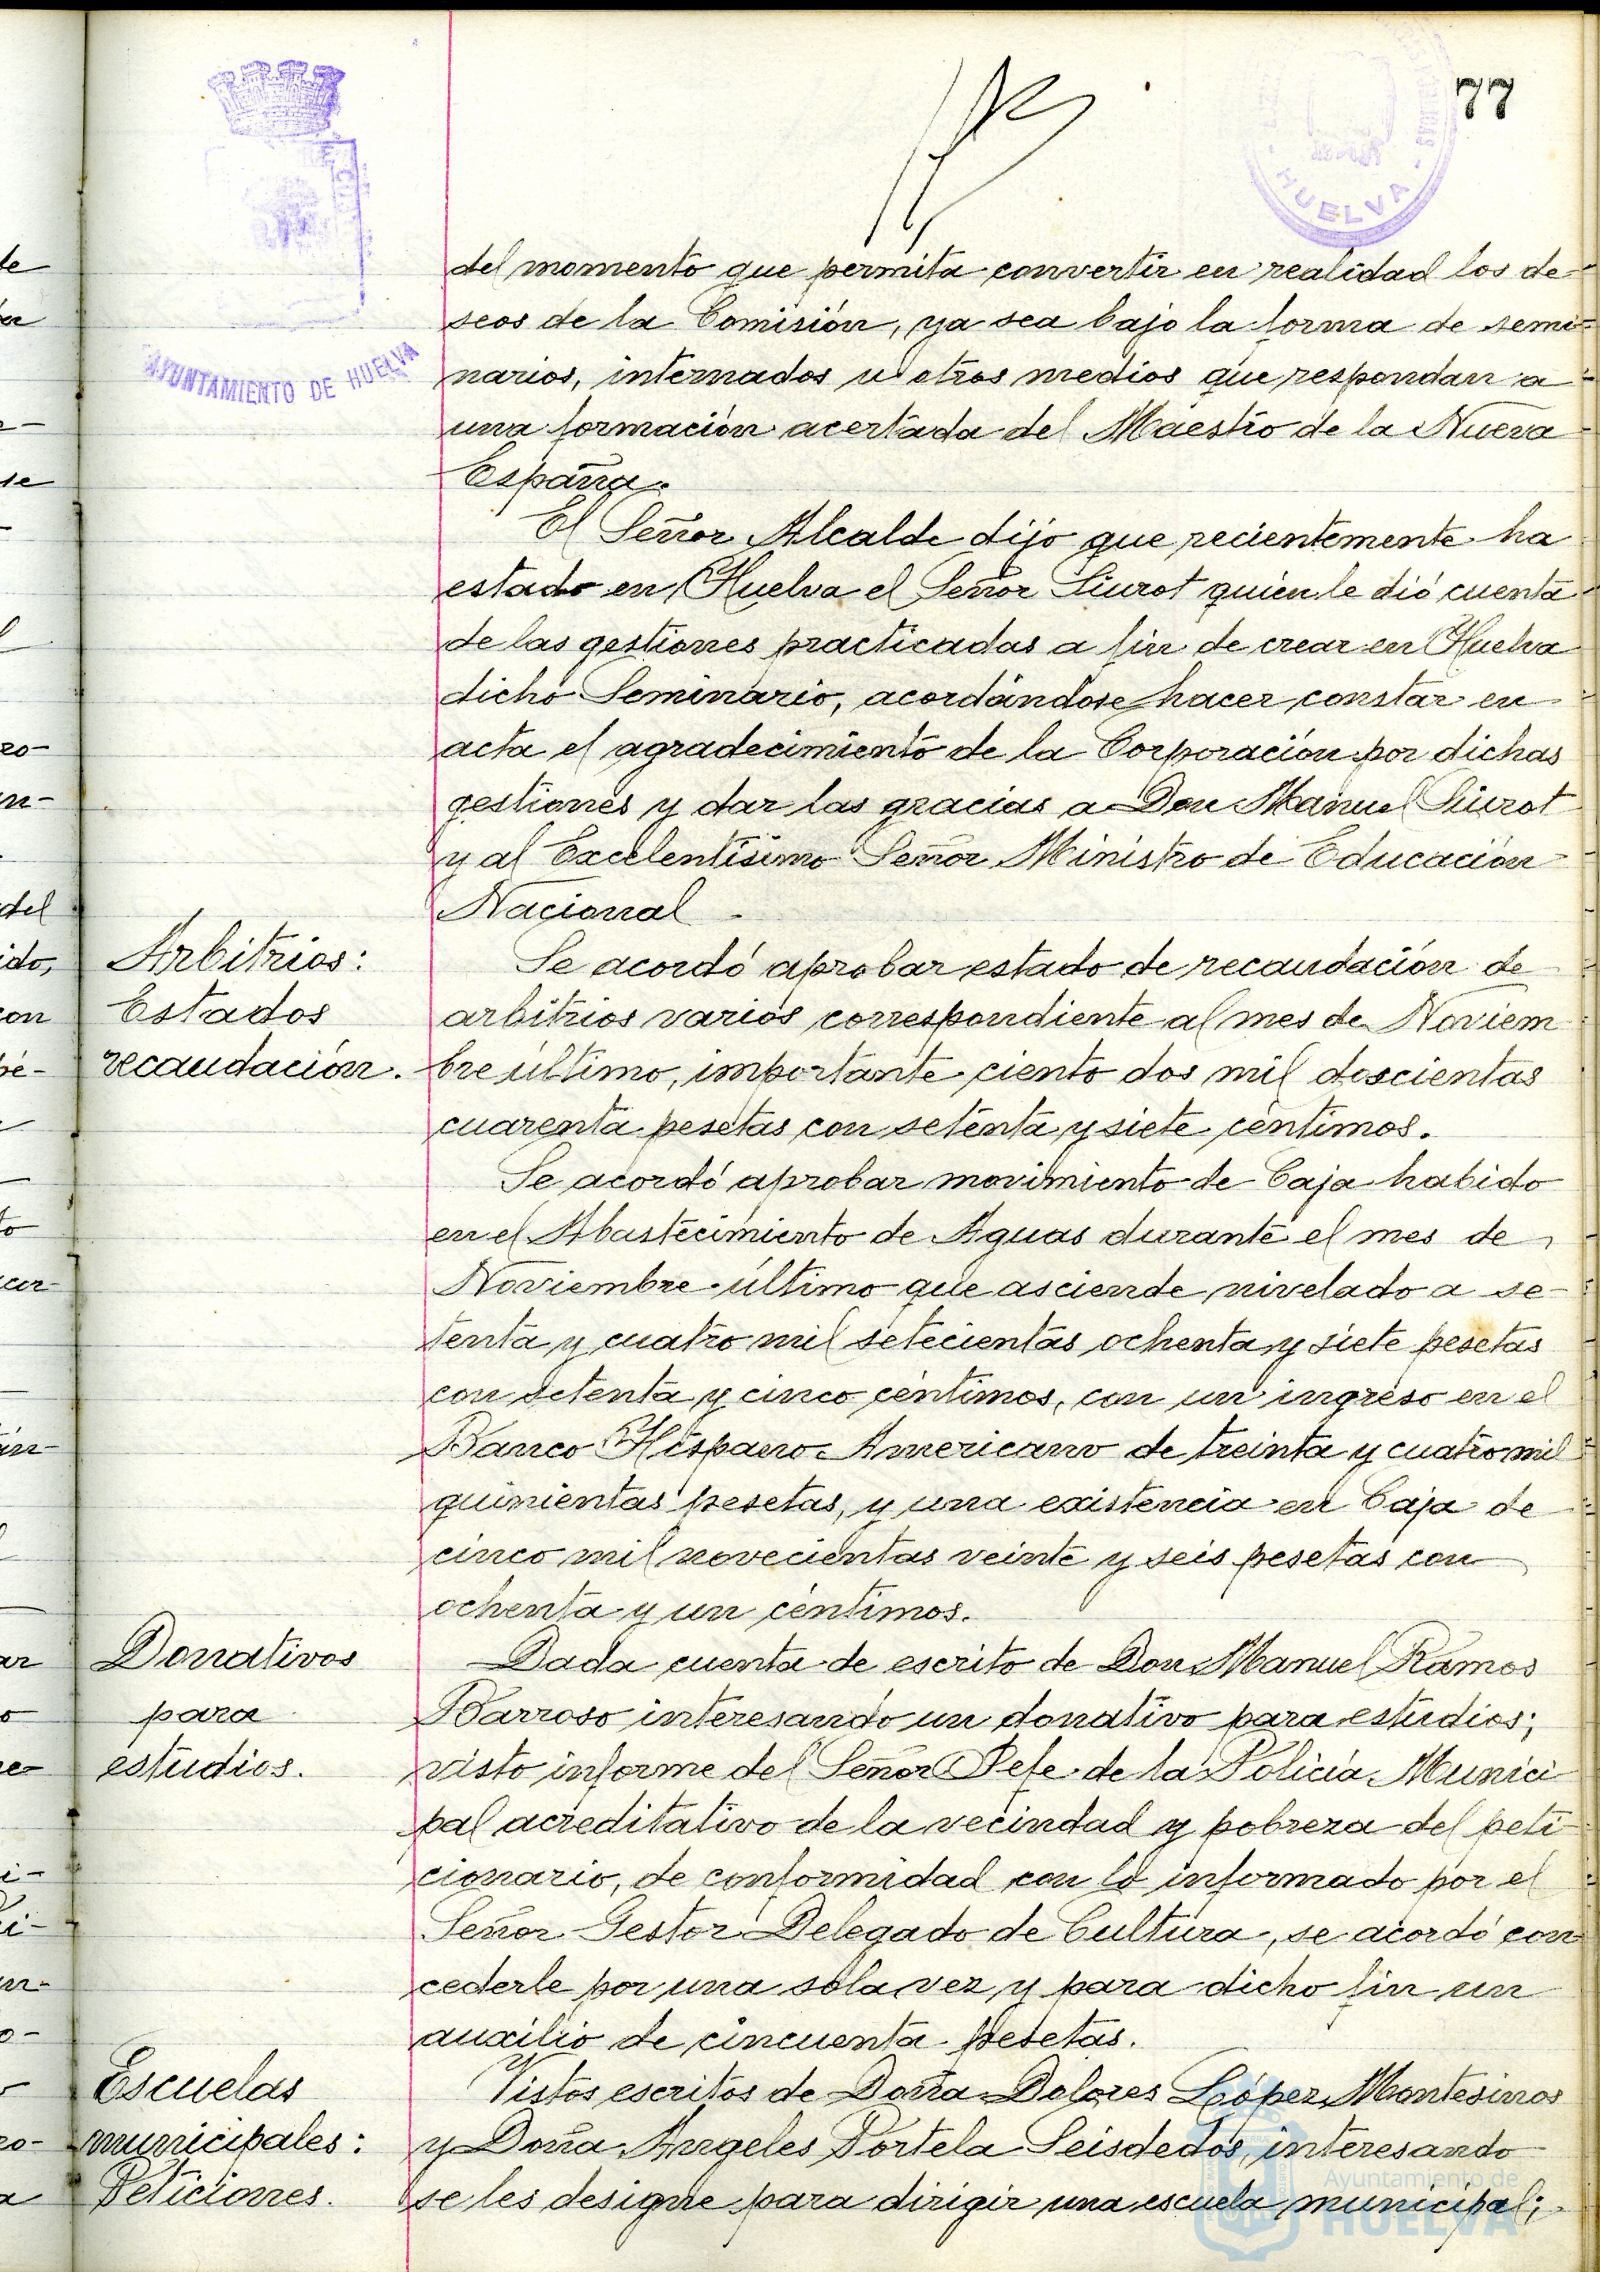 77
HUELVA
AYUNTAMIENTO DE HUELVA
del momento que permita convertir en realidad los de-
seos de la Comisión, ya sea bajo la forma de semi-
narios, internados u otros medios que respondan a
una formación acertada del Maestro de la Nueva
España.
El Señor Alcalde dijo que recientemente ha
estado en Huelva el Señor Siurot quien le dió cuenta
de las gestiones practicadas a fin de crear en Huelva
dicho Seminario, acordándose hacer constar en
acta el agradecimiento de la Corporación por dichas
gestiones y dar las gracias a Don Manuel Siurot
y al Excelentísimo Señor Ministro de Educación
Nacional.
Arbitrios:
Estados
recaudación.
Se acordó aprobar estado de recaudación de
arbitrios varios correspondiente al mes de Noviem
bre último, importante ciento dos mil doscientas
cuarenta pesetas con setenta y siete céntimos.
Se acordó aprobar movimiento de Caja habido
en el Abastecimiento de Aguas durante el mes de
Noviembre último que asciende nivelado a se-
tenta y cuatro mil setecientas ochenta y siete pesetas
con setenta y cinco céntimos, con un ingreso en el
Banco Hispano-Americano de treinta y cuatro mil
quinientas pesetas, y una existencia en Caja de
cinco mil novecientas veinte y seis pesetas con
ochenta y un céntimos.
Donativos
para
estudios.
Dada cuenta de escrito de Don Manuel Ramos
Barroso interesando un donativo para estudios;
visto informe del Señor Jefe de la Policía Munici
pal acreditativo de la vecindad y pobreza del peti
cionario, de conformidad con lo informado por el
Señor Gestor Delegado de Cultura, se acordó con
cederle por una sola vez y para dicho fin un
auxilio de cincuenta pesetas.
Escuelas
municipales:
Peticiones.
Vistos escritos de Doña Dolores López Montesinos
y Doña Angeles Portela Seisdedos, interesando
se les designe para dirigir una escuela municipal;
Ayuntamiento de
HUELVA